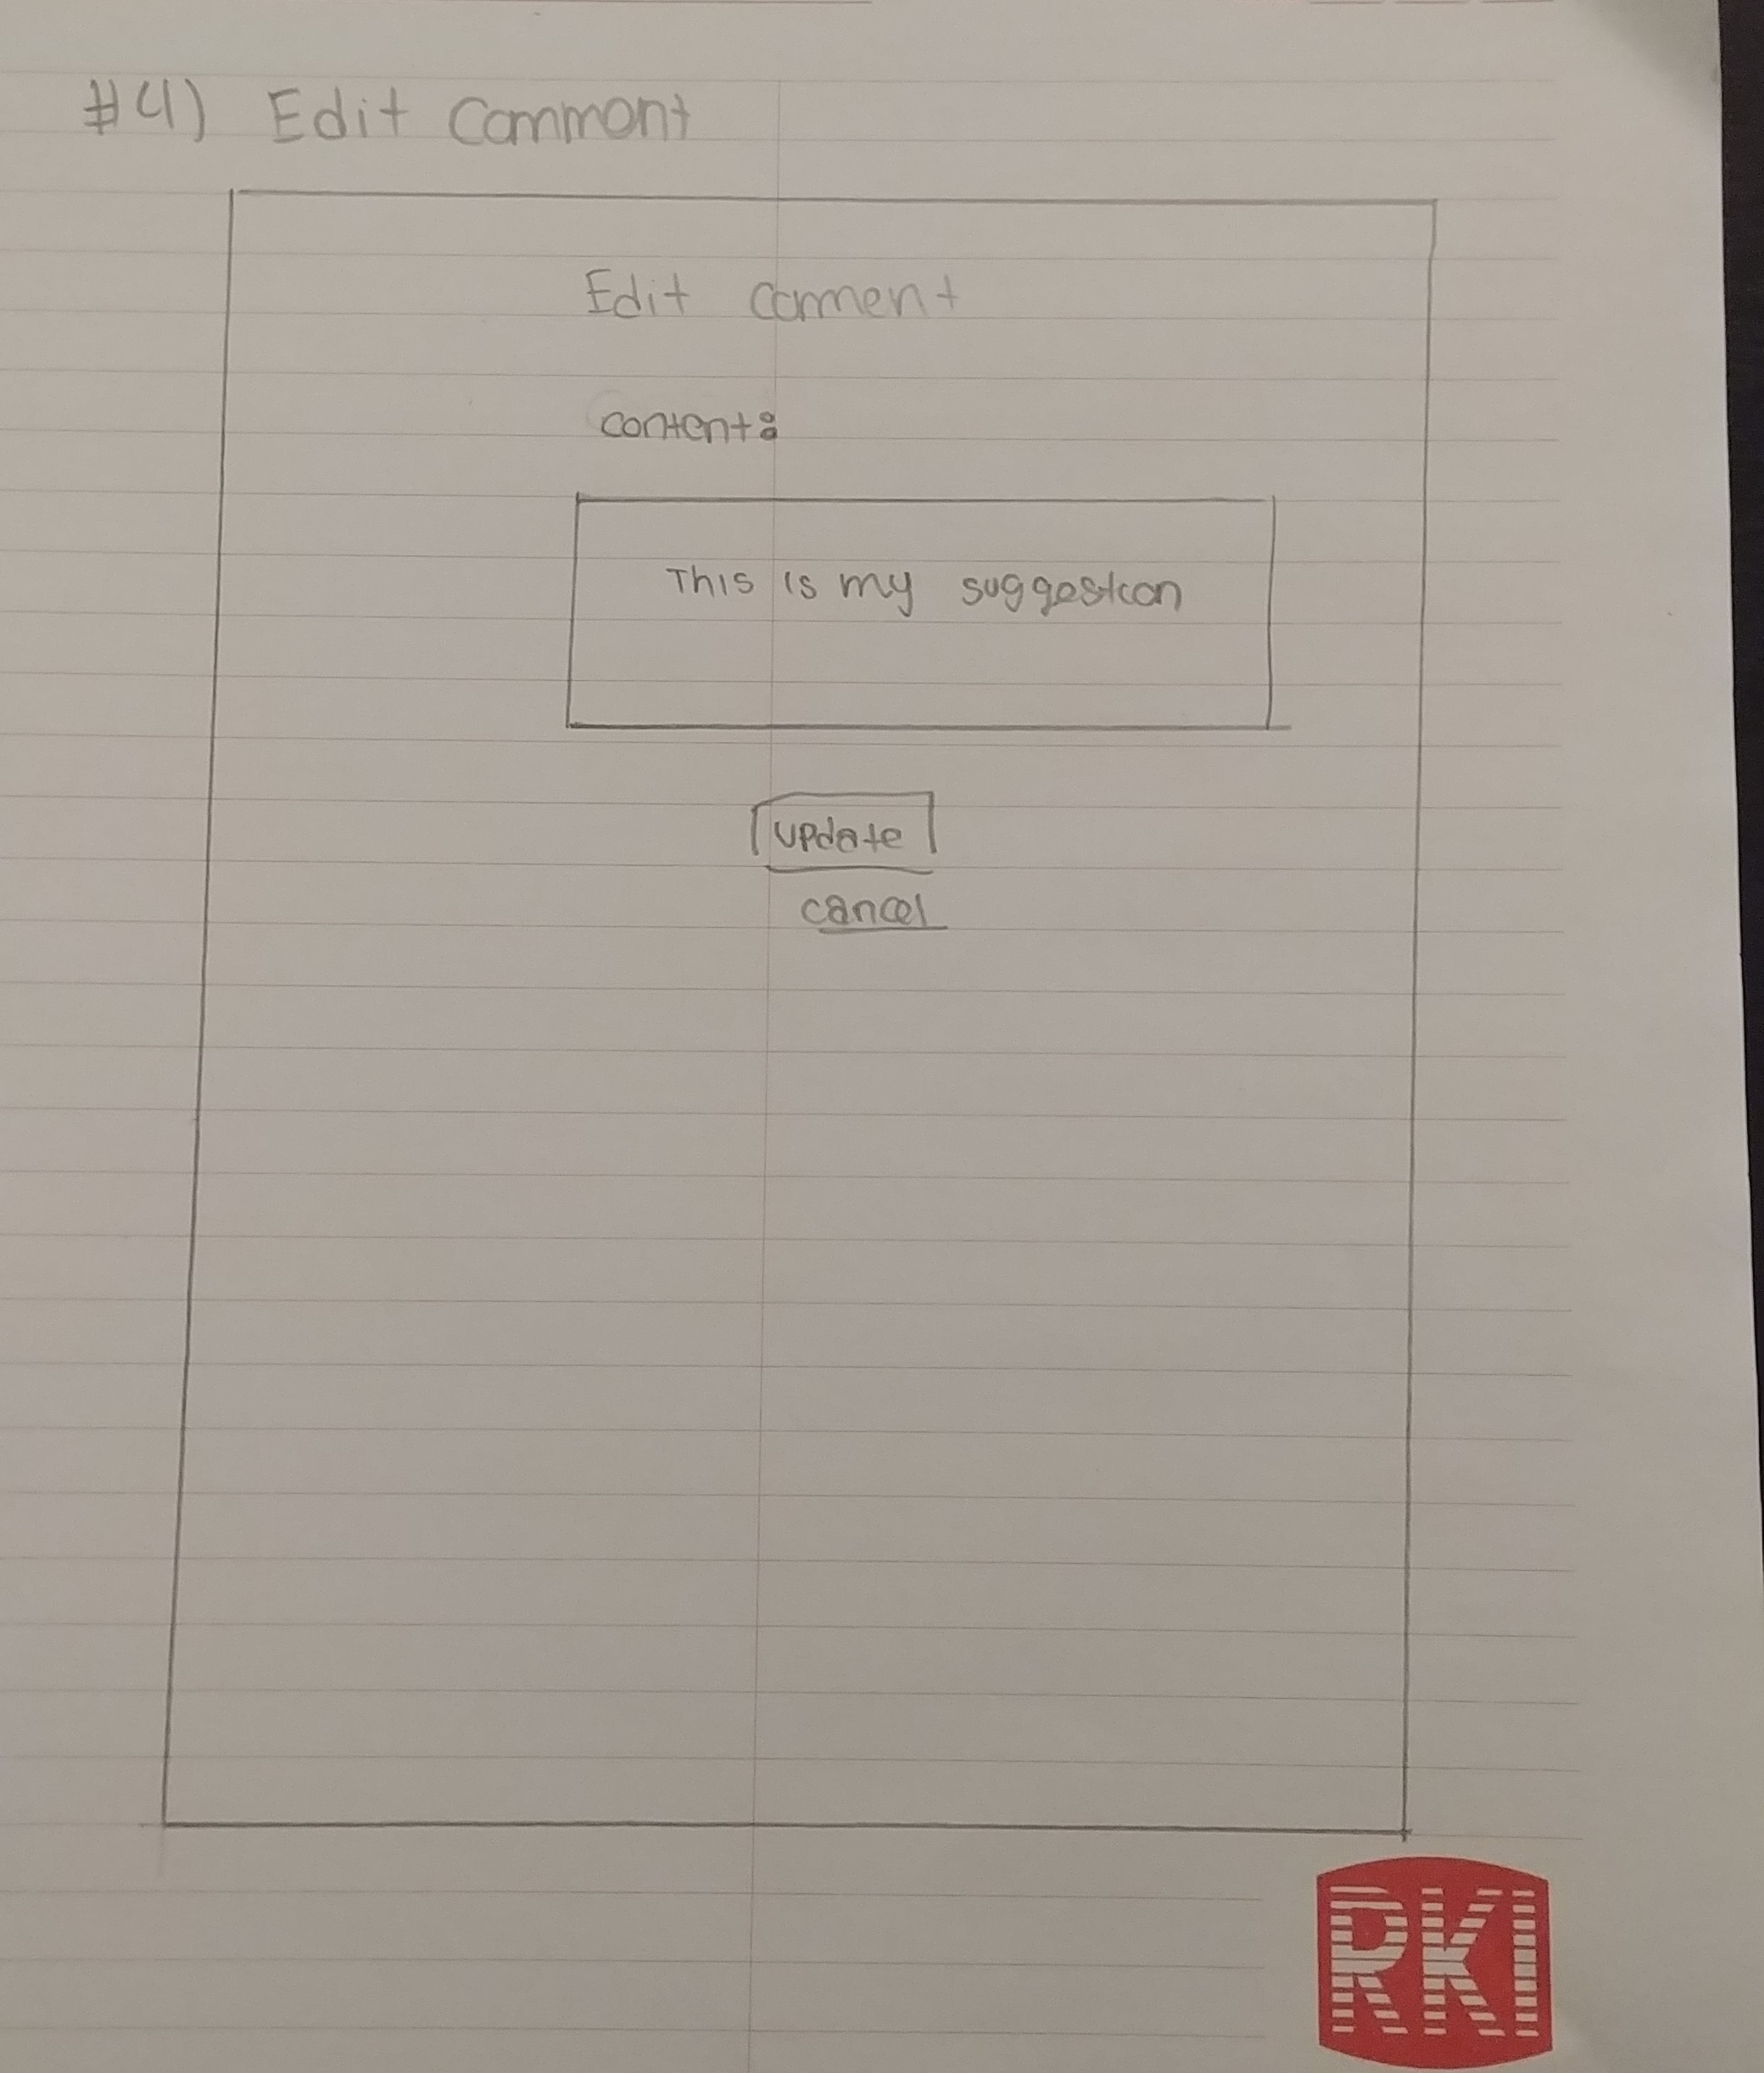 #4) Edit Comment
Edit comment
content:
This is my suggestion
update
cancel
RKI